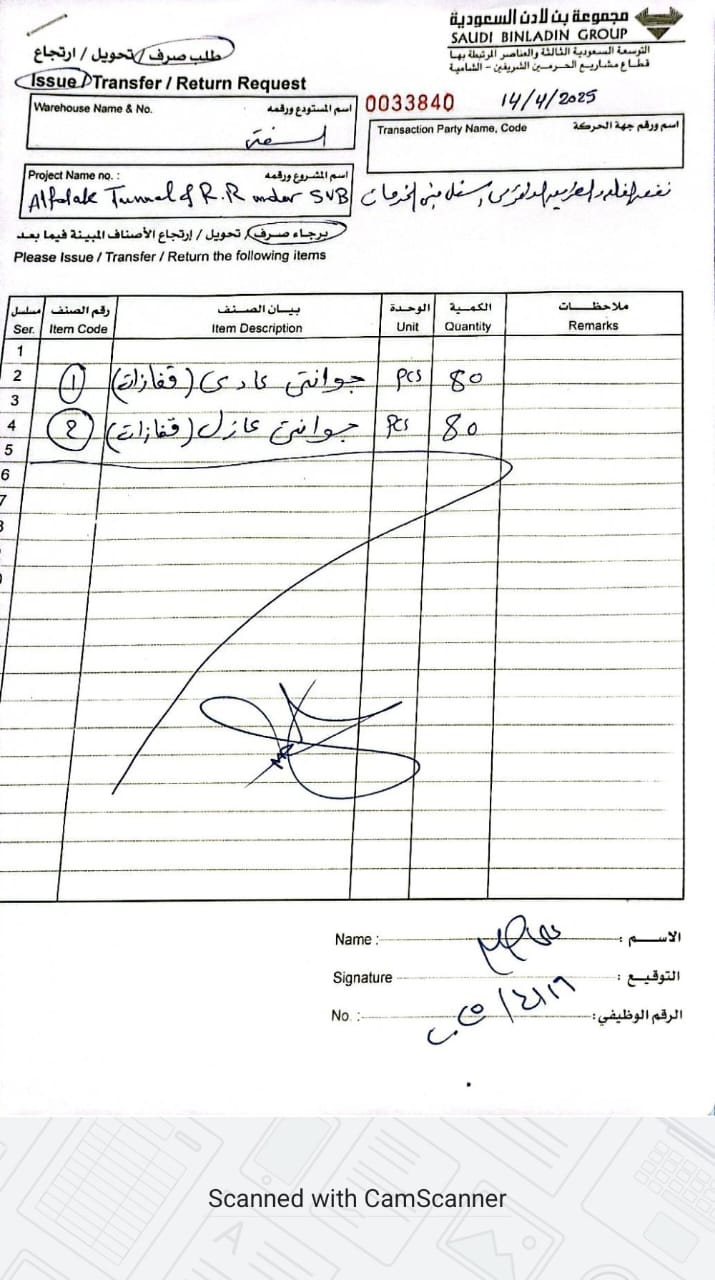 مجموعة بن لادن السعودية
SAUDI BINLADIN GROUP
التوسعة السعودية الثالثة والعناصر المرتبطة بها
قطاع مشاريع الحرمين الشريفين - الشامية
طلب صرف / تحويل / ارتجاع
Issue / Transfer / Return Request
Warehouse Name & No. اسم المستودع ورقمه
0033840
14/4/2025
Transaction Party Name, Code اسم ورقم جهة الحركة
Project Name no. : اسم المشروع ورقمه
Alfalak Tunnel & R.R under SVB
برجاء صرف / تحويل / إرتجاع الأصناف المبينة فيما بعد
Please Issue / Transfer / Return the following items
مسلسل رقم الصنف بيـــان الصنـف الوحدة الكمية ملاحظـــات
Ser. Item Code Item Description Unit Quantity Remarks
1
2 1 جوانتى عادى (قفازات) Pcs 80
3
4 2 جوانتى عازل (قفازات) Pcs 80
5
6
7
Name : الاســـم :
Signature التوقيـع :
No. : الرقم الوظيفي:
Scanned with CamScanner